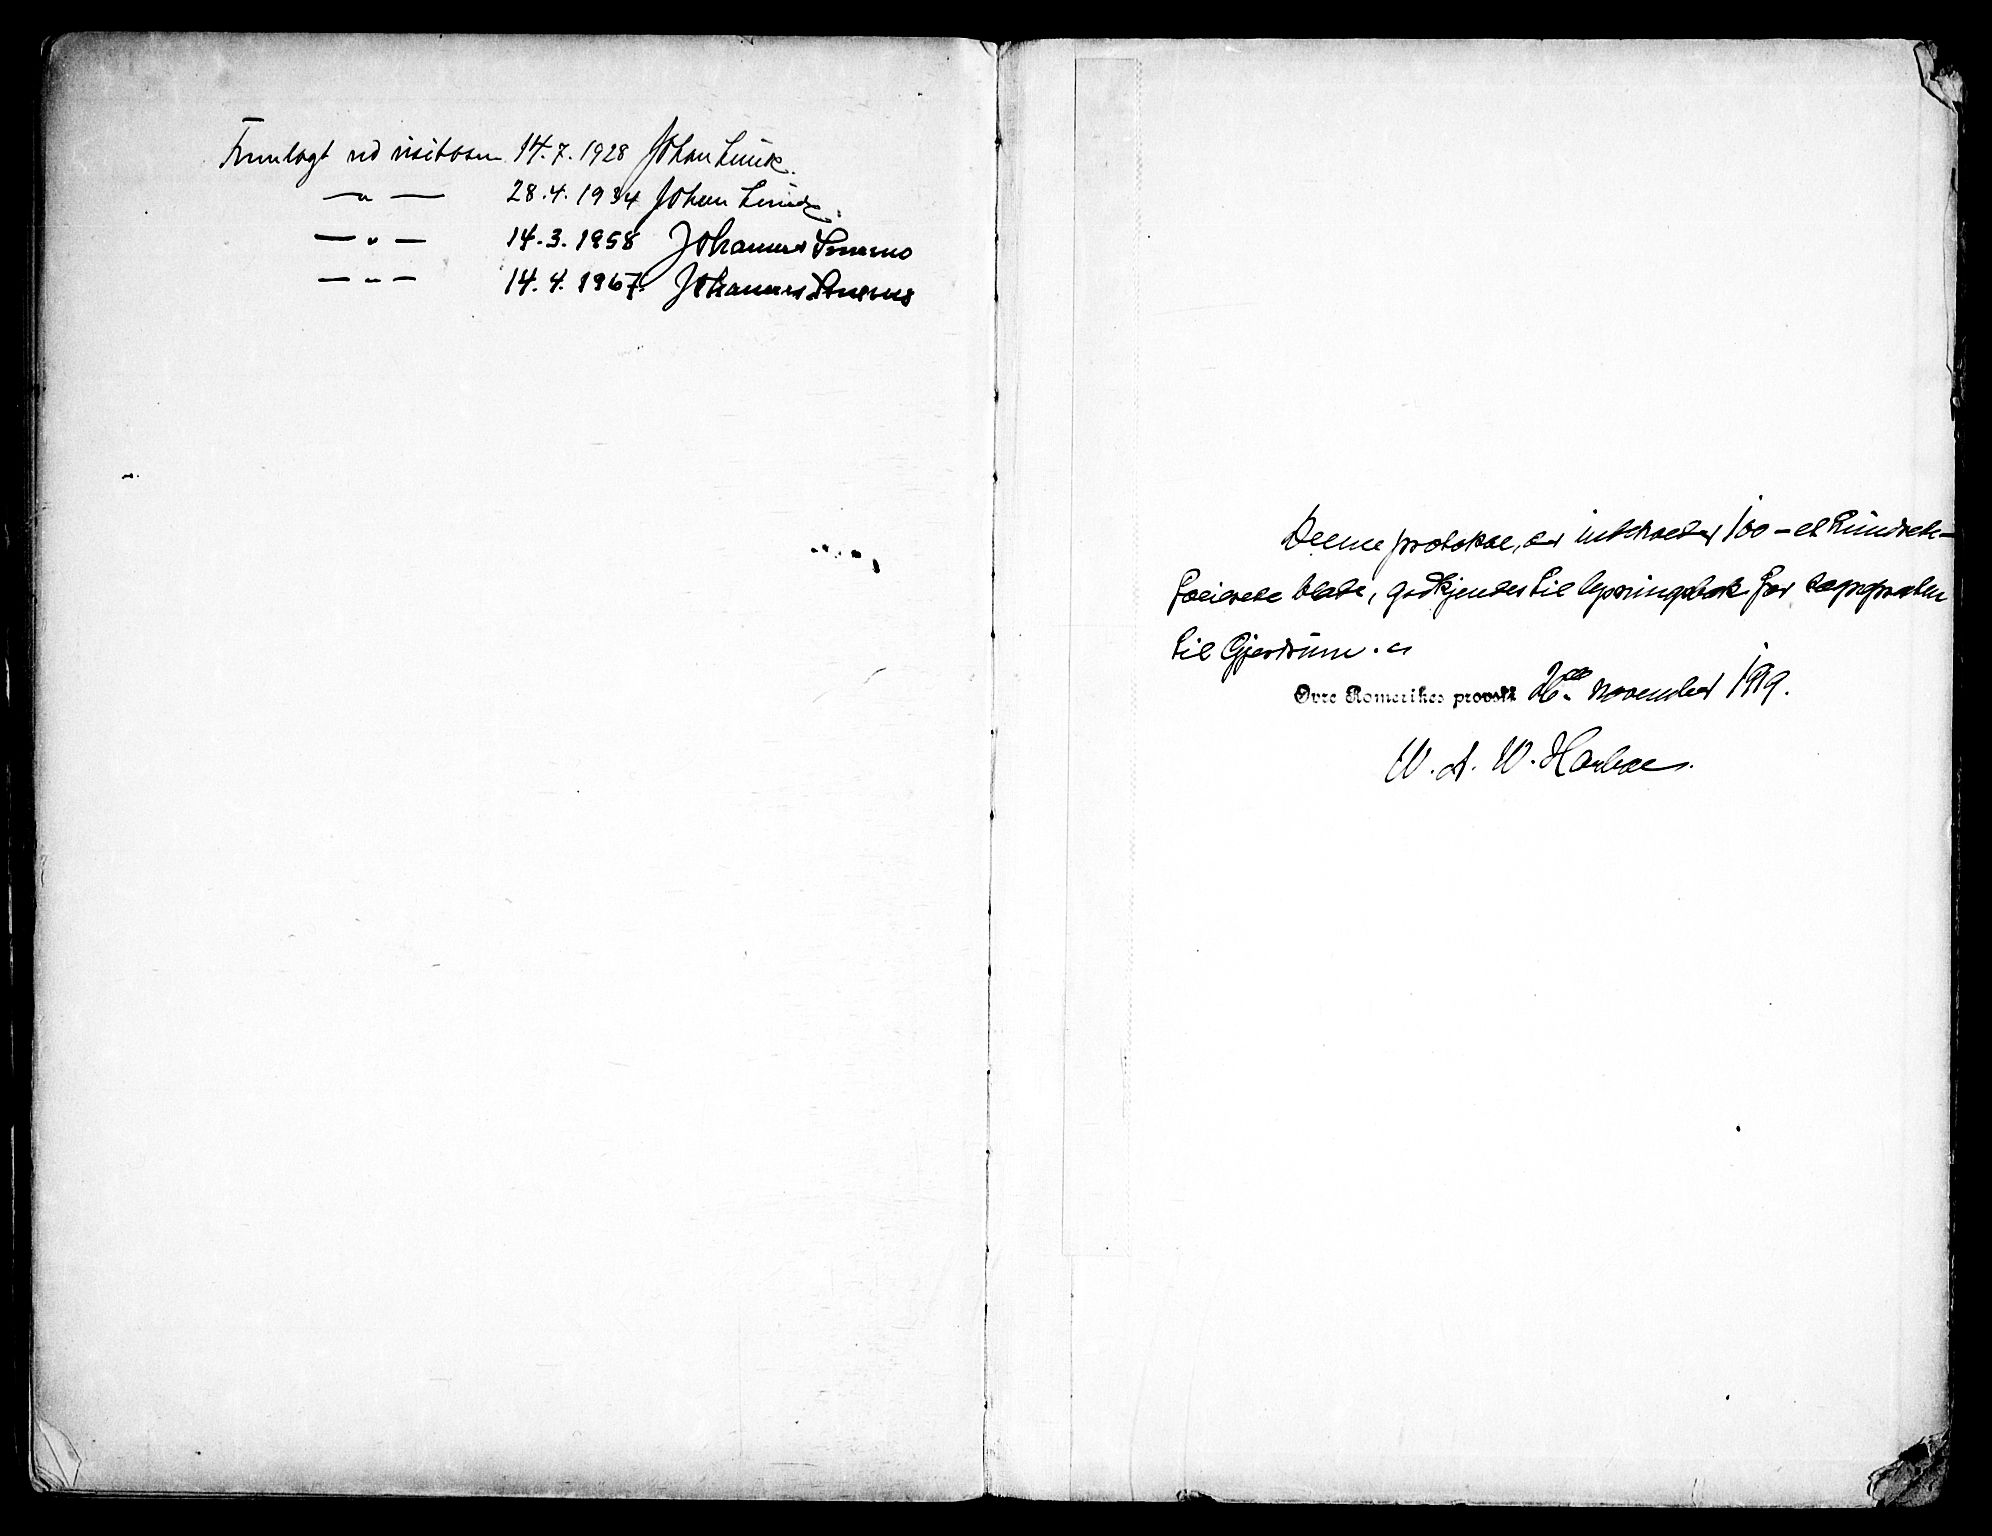 Fremlagt ved visitasen 14.7.1928 Johan Lunde.
— " — 28.4.1934 Johan Lunde.
— " — 14.3.1958 Johannes Smemo
— " — 14.4.1967. Johannes Smemo
Denne protokol, der indeholder 100 – et hundrede –
folierede blade, godkjendes til lysningsbok for sognepresten
til Gjerdrum.
Øvre Romerikes provsti 26de november 1919.
W. A. W. Harboe.